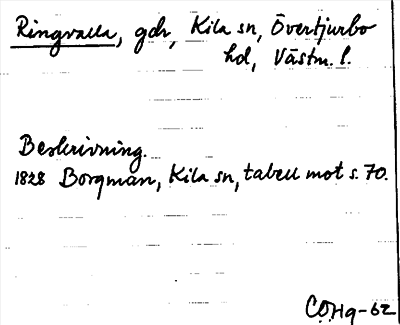 Ringvalla, gdr, Kila sn, Övertjurbo
hd, Västm. l.
Beskrivning.
1828 Borgman, Kila sn, tabell mot s. 70.
COHg-62